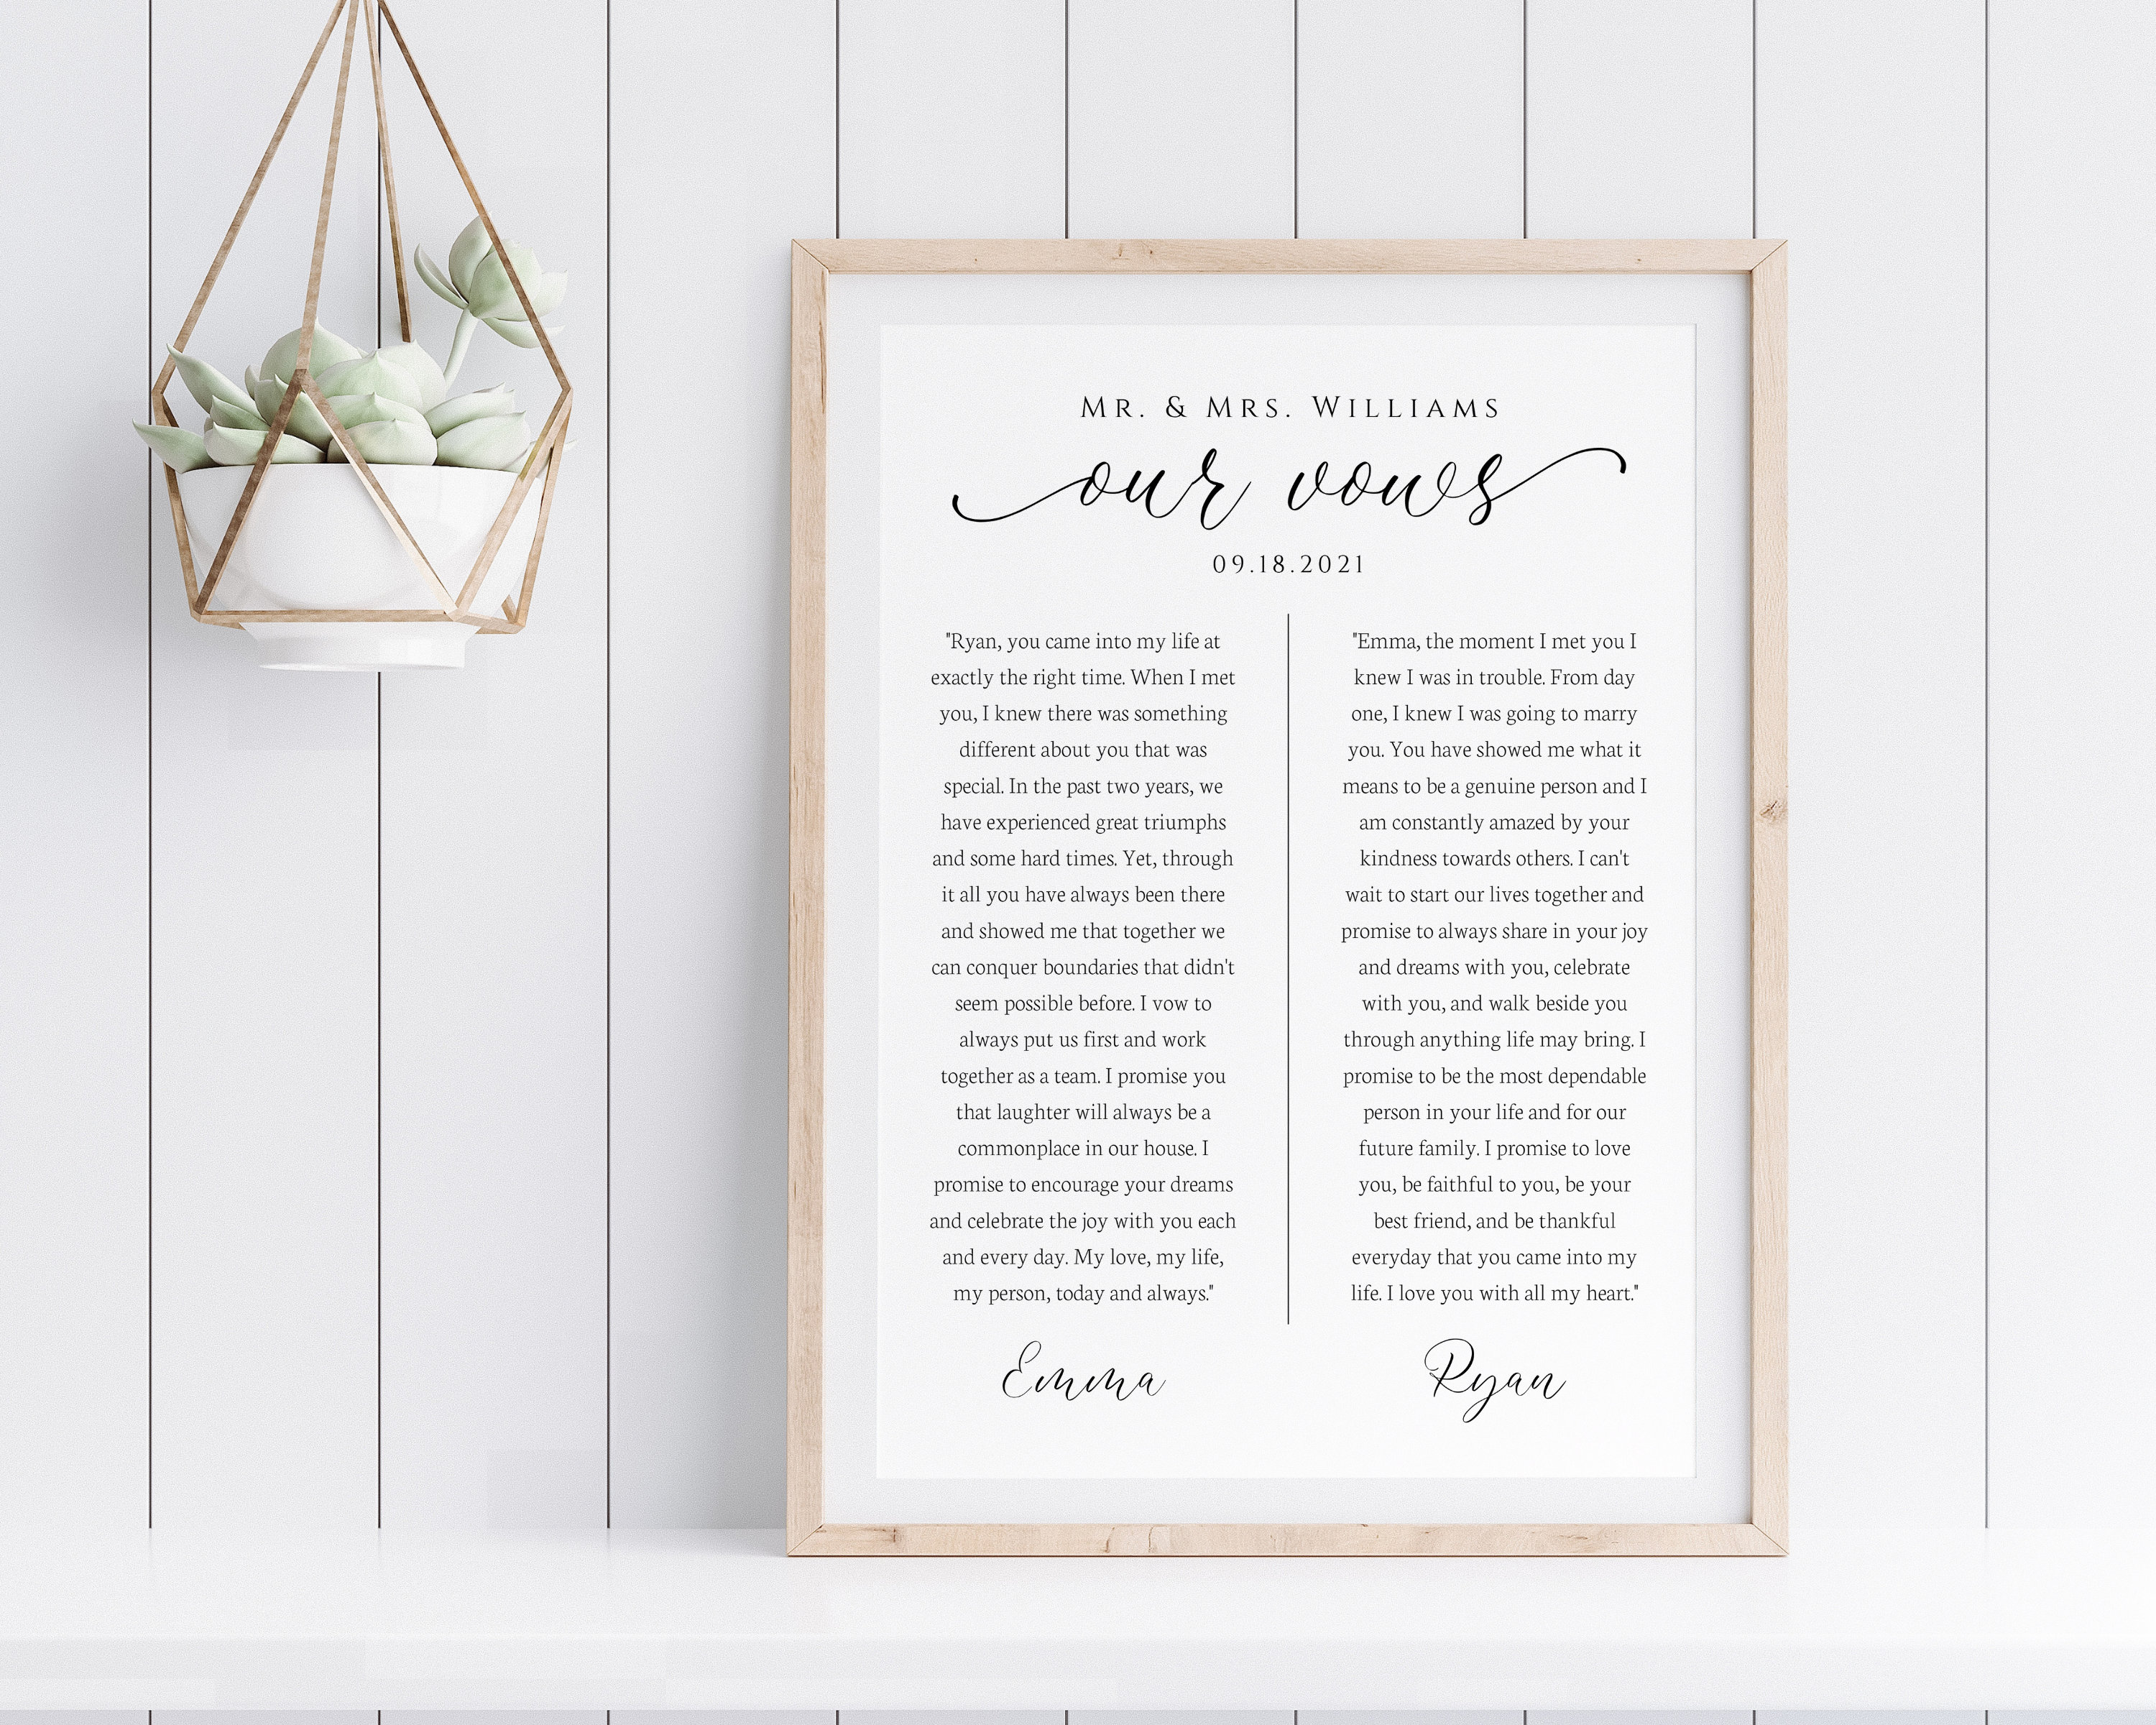 Mr. & Mrs. Williams
our vows
09.18.2021
"Ryan, you came into my life at
exactly the right time. When I met
you, I knew there was something
different about you that was
special. In the past two years, we
have experienced great triumphs
and some hard times. Yet, through
it all you have always been there
and showed me that together we
can conquer boundaries that didn't
seem possible before. I vow to
always put us first and work
together as a team. I promise you
that laughter will always be a
commonplace in our house. I
promise to encourage your dreams
and celebrate the joy with you each
and every day. My love, my life,
my person, today and always."
Emma
"Emma, the moment I met you I
knew I was in trouble. From day
one, I knew I was going to marry
you. You have showed me what it
means to be a genuine person and I
am constantly amazed by your
kindness towards others. I can't
wait to start our lives together and
promise to always share in your joy
and dreams with you, celebrate
with you, and walk beside you
through anything life may bring. I
promise to be the most dependable
person in your life and for our
future family. I promise to love
you, be faithful to you, be your
best friend, and be thankful
everyday that you came into my
life. I love you with all my heart."
Ryan